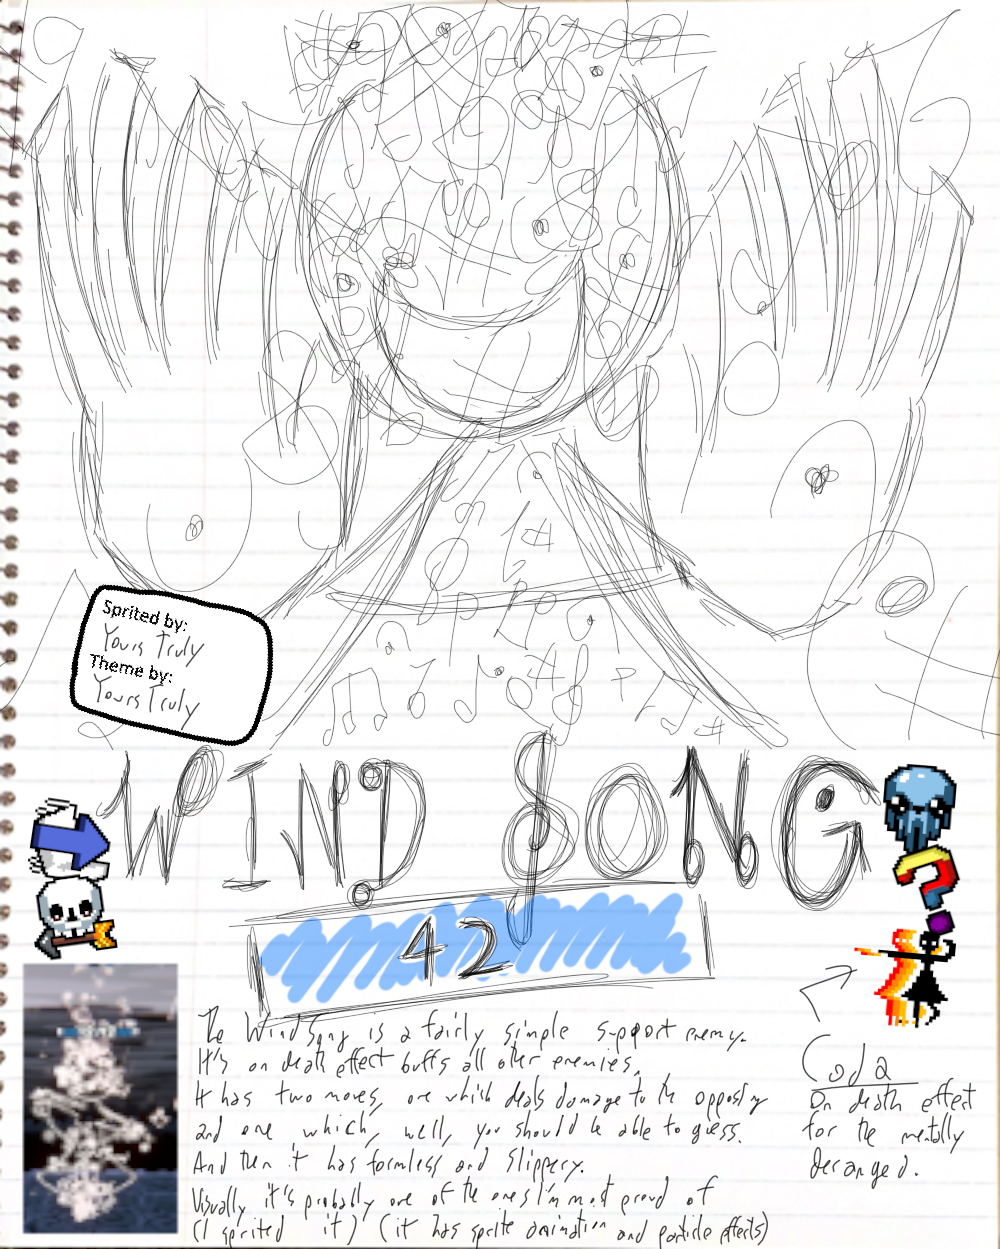 Sprited by:
Yours Truly
Theme by:
Yours Truly
WIND SONG
42
The WindSong is a fairly simple support enemy.
It's on death effect buffs all other enemies.
It has two moves, one which deals damage to the opposing
and one which, well, you should be able to guess.
And then it has formless and slippery.
Visually it's probably one of the ones I'm most proud of
(I sprited it) (it has sprite animation and particle effects)
Coda
On death effect
for the mentally
deranged.